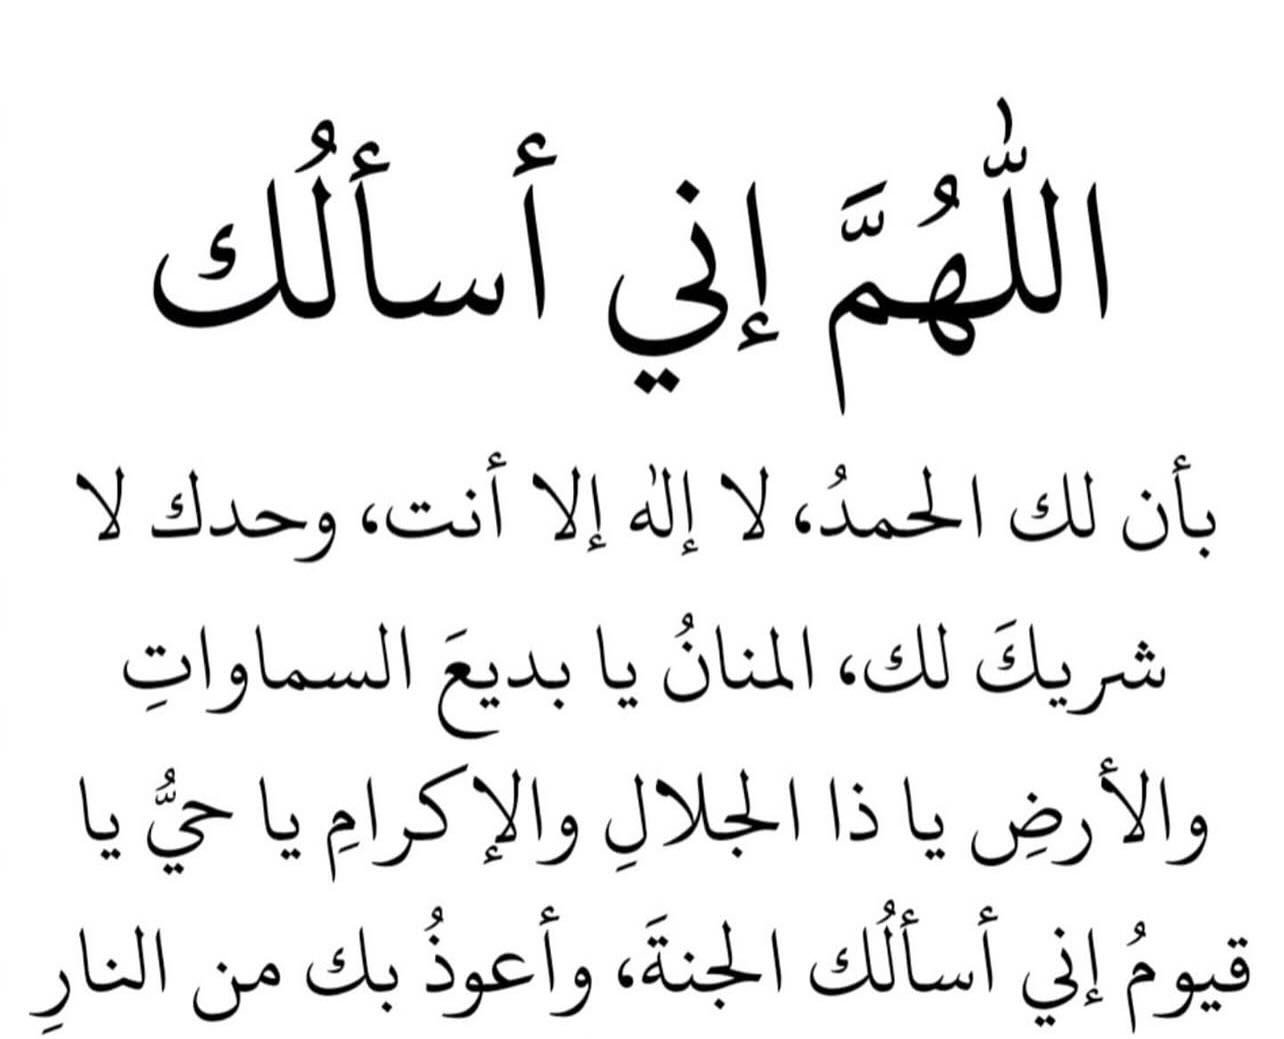 اللّٰهُمَّ إني أسألُك
بأن لك الحمدُ، لا إلٰه إلا أنت، وحدك لا
شريكَ لك، المنانُ يا بديعَ السماواتِ
والأرضِ يا ذا الجلالِ والإكرامِ يا حيُّ يا
قيومُ إني أسألُك الجنةَ، وأعوذُ بك من النارِ